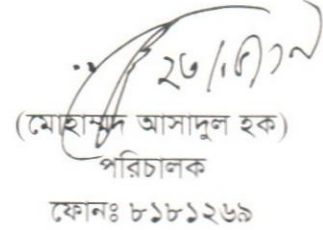 (মোহাম্মদ আসাদুল হক)
পরিচালক
ফোনঃ ৮১৮১২৬৯